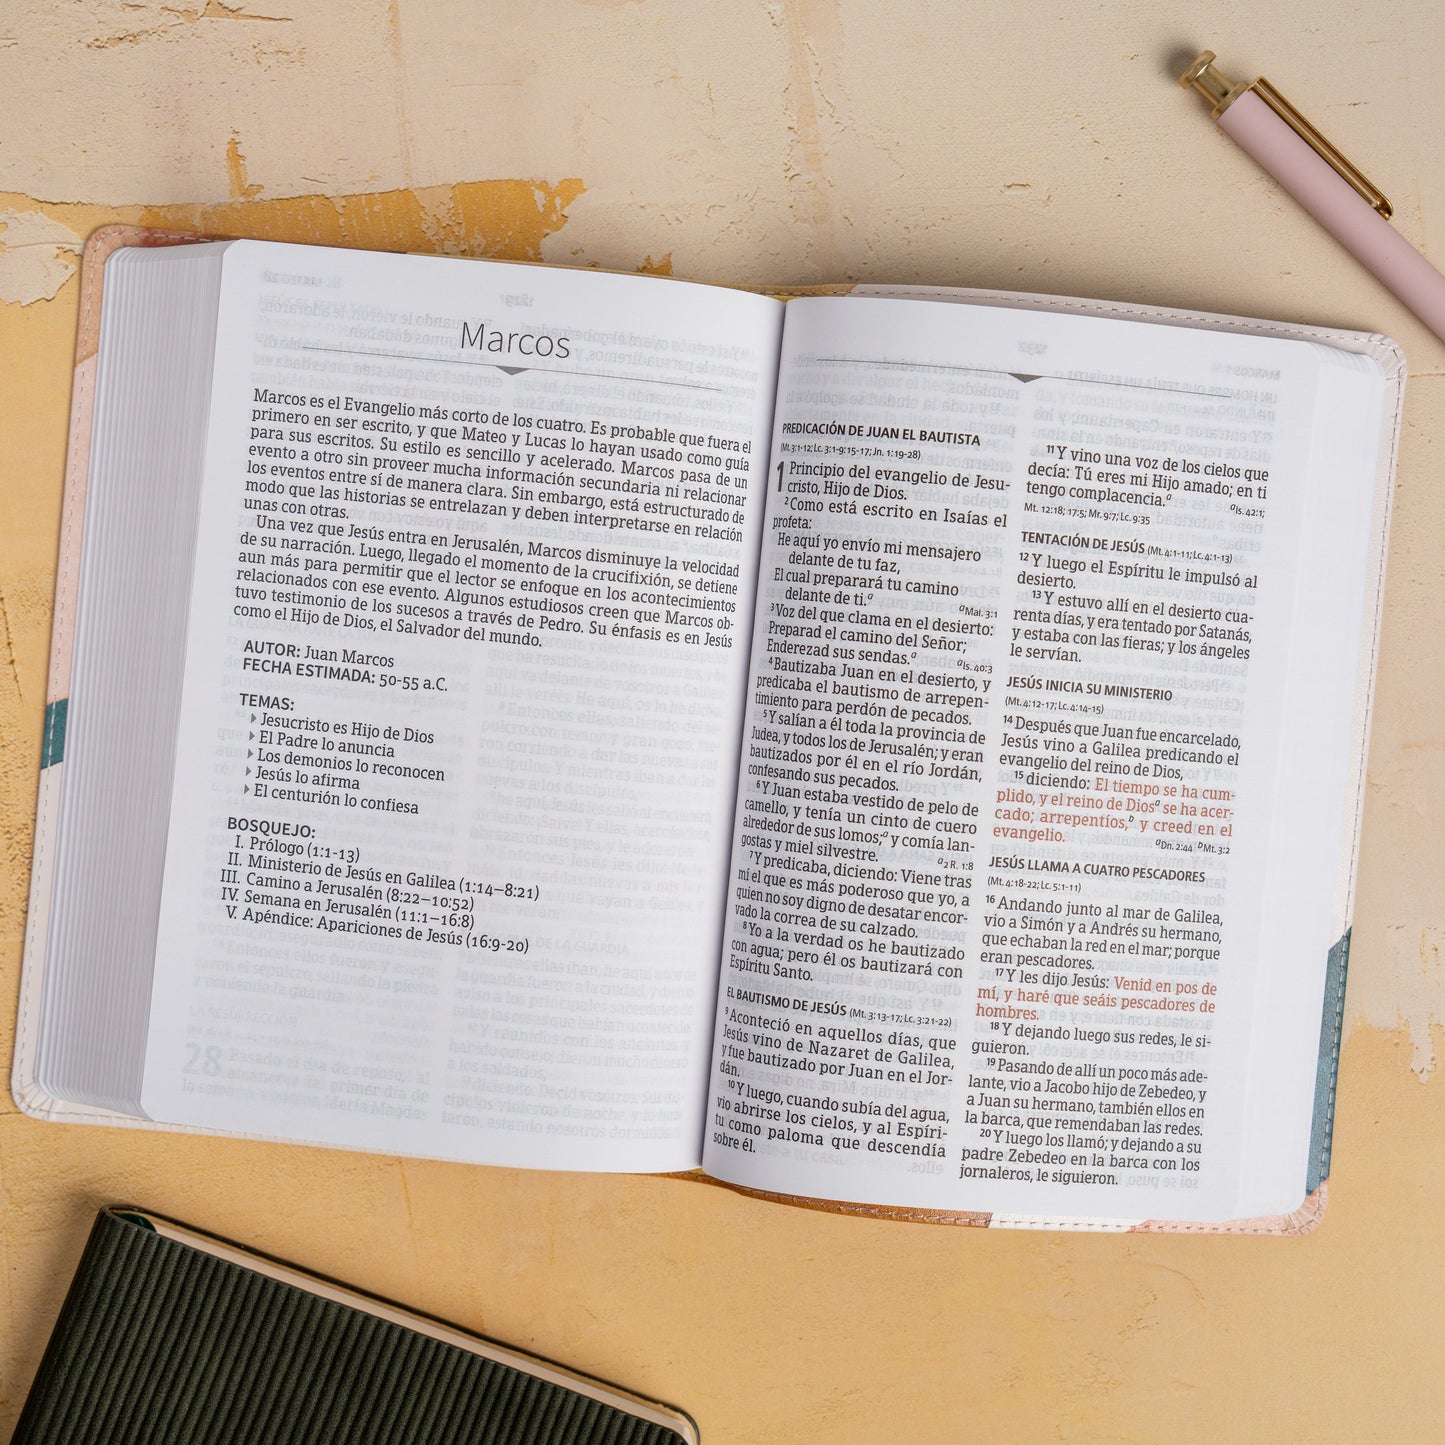 Marcos
Marcos es el Evangelio más corto de los cuatro. Es probable que fuera el
primero en ser escrito, y que Mateo y Lucas lo hayan usado como guía
para sus escritos. Su estilo es sencillo y acelerado. Marcos pasa de un
evento a otro sin proveer mucha información secundaria ni relacionar
los eventos entre sí de manera clara. Sin embargo, está estructurado de
modo que las historias se entrelazan y deben interpretarse en relación
unas con otras.
Una vez que Jesús entra en Jerusalén, Marcos disminuye la velocidad
de su narración. Luego, llegado el momento de la crucifixión, se detiene
aun más para permitir que el lector se enfoque en los acontecimientos
relacionados con ese evento. Algunos estudiosos creen que Marcos ob-
tuvo testimonio de los sucesos a través de Pedro. Su énfasis es en Jesús
como el Hijo de Dios, el Salvador del mundo.
AUTOR: Juan Marcos
FECHA ESTIMADA: 50-55 a.C.
TEMAS:
Jesucristo es Hijo de Dios
El Padre lo anuncia
Los demonios lo reconocen
Jesús lo afirma
El centurión lo confiesa
BOSQUEJO:
I. Prólogo (1:1-13)
II. Ministerio de Jesús en Galilea (1:14–8:21)
III. Camino a Jerusalén (8:22–10:52)
IV. Semana en Jerusalén (11:1–16:8)
V. Apéndice: Apariciones de Jesús (16:9-20)
PREDICACIÓN DE JUAN EL BAUTISTA
(Mt. 3:1-12; Lc. 3:1-9:15-17; Jn. 1:19-28)
1 Principio del evangelio de Jesu-
cristo, Hijo de Dios.
2 Como está escrito en Isaías el
profeta:
He aquí yo envío mi mensajero
delante de tu faz,
El cual preparará tu camino
delante de ti.a aMal. 3:1
3 Voz del que clama en el desierto:
Preparad el camino del Señor;
Enderezad sus sendas.a aIs. 40:3
4 Bautizaba Juan en el desierto, y
predicaba el bautismo de arrepen-
timiento para perdón de pecados.
5 Y salían a él toda la provincia de
Judea, y todos los de Jerusalén; y eran
bautizados por él en el río Jordán,
confesando sus pecados.
6 Y Juan estaba vestido de pelo de
camello, y tenía un cinto de cuero
alrededor de sus lomos;a y comía lan-
gostas y miel silvestre. a2 R. 1:8
7 Y predicaba, diciendo: Viene tras
mí el que es más poderoso que yo, a
quien no soy digno de desatar encor-
vado la correa de su calzado.
8 Yo a la verdad os he bautizado
con agua; pero él os bautizará con
Espíritu Santo.
EL BAUTISMO DE JESÚS (Mt. 3:13-17; Lc. 3:21-22)
9 Aconteció en aquellos días, que
Jesús vino de Nazaret de Galilea,
y fue bautizado por Juan en el Jor-
dán.
10 Y luego, cuando subía del agua,
vio abrirse los cielos, y al Espíri-
tu como paloma que descendía
sobre él.
11 Y vino una voz de los cielos que
decía: Tú eres mi Hijo amado; en ti
tengo complacencia.a aIs. 42:1;
Mt. 12:18; 17:5; Mr. 9:7; Lc. 9:35
TENTACIÓN DE JESÚS (Mt. 4:1-11; Lc. 4:1-13)
12 Y luego el Espíritu le impulsó al
desierto.
13 Y estuvo allí en el desierto cua-
renta días, y era tentado por Satanás,
y estaba con las fieras; y los ángeles
le servían.
JESÚS INICIA SU MINISTERIO
(Mt. 4:12-17; Lc. 4:14-15)
14 Después que Juan fue encarcelado,
Jesús vino a Galilea predicando el
evangelio del reino de Dios,
15 diciendo: El tiempo se ha cum-
plido, y el reino de Diosa se ha acer-
cado; arrepentíos,b y creed en el
evangelio. aDn. 2:44 bMt. 3:2
JESÚS LLAMA A CUATRO PESCADORES
(Mt. 4:18-22; Lc. 5:1-11)
16 Andando junto al mar de Galilea,
vio a Simón y a Andrés su hermano,
que echaban la red en el mar; porque
eran pescadores.
17 Y les dijo Jesús: Venid en pos de
mí, y haré que seáis pescadores de
hombres.
18 Y dejando luego sus redes, le si-
guieron.
19 Pasando de allí un poco más ade-
lante, vio a Jacobo hijo de Zebedeo, y
a Juan su hermano, también ellos en
la barca, que remendaban las redes.
20 Y luego los llamó; y dejando a su
padre Zebedeo en la barca con los
jornaleros, le siguieron.